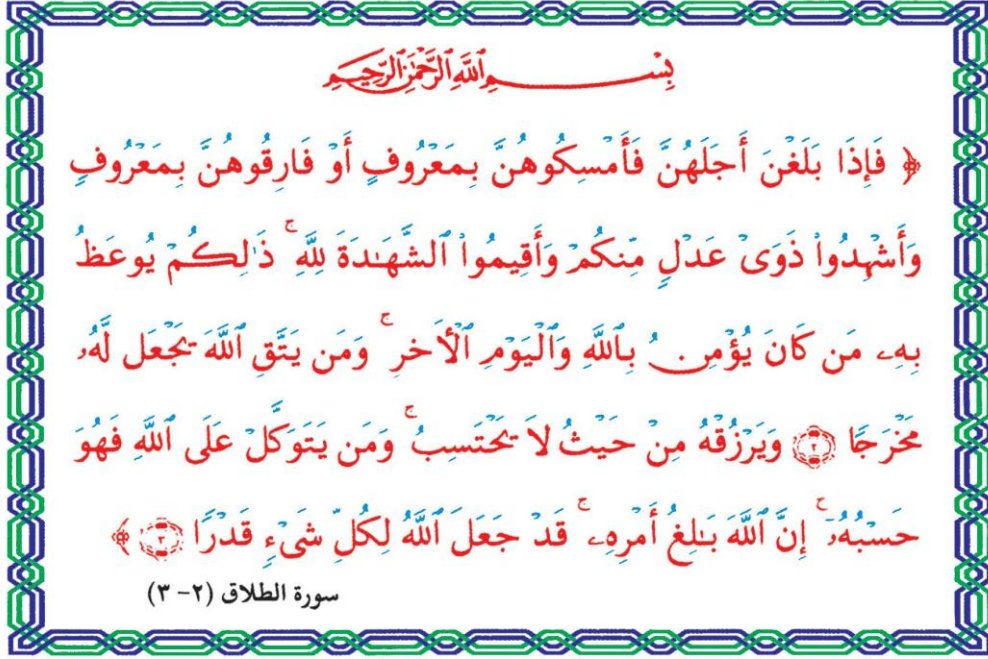 بِسْمِ ٱللَّهِ ٱلرَّحْمَٰنِ ٱلرَّحِيمِ
﴿ فَإِذَا بَلَغْنَ أَجَلَهُنَّ فَأَمْسِكُوهُنَّ بِمَعْرُوفٍ أَوْ فَارِقُوهُنَّ بِمَعْرُوفٍ
وَأَشْهِدُوا۟ ذَوَىْ عَدْلٍ مِّنكُمْ وَأَقِيمُوا۟ ٱلشَّهَـٰدَةَ لِلَّهِ ۚ ذَٰلِكُمْ يُوعَظُ
بِهِۦ مَن كَانَ يُؤْمِنُ بِٱللَّهِ وَٱلْيَوْمِ ٱلْأَخِرِ ۚ وَمَن يَتَّقِ ٱللَّهَ يَجْعَل لَّهُۥ
مَخْرَجًا ﴿٢﴾ وَيَرْزُقْهُ مِنْ حَيْثُ لَا يَحْتَسِبُ ۚ وَمَن يَتَوَكَّلْ عَلَى ٱللَّهِ فَهُوَ
حَسْبُهُۥٓ ۚ إِنَّ ٱللَّهَ بَـٰلِغُ أَمْرِهِۦ ۚ قَدْ جَعَلَ ٱللَّهُ لِكُلِّ شَىْءٍ قَدْرًا ﴿٣﴾ ﴾
سورة الطلاق (٢- ٣)